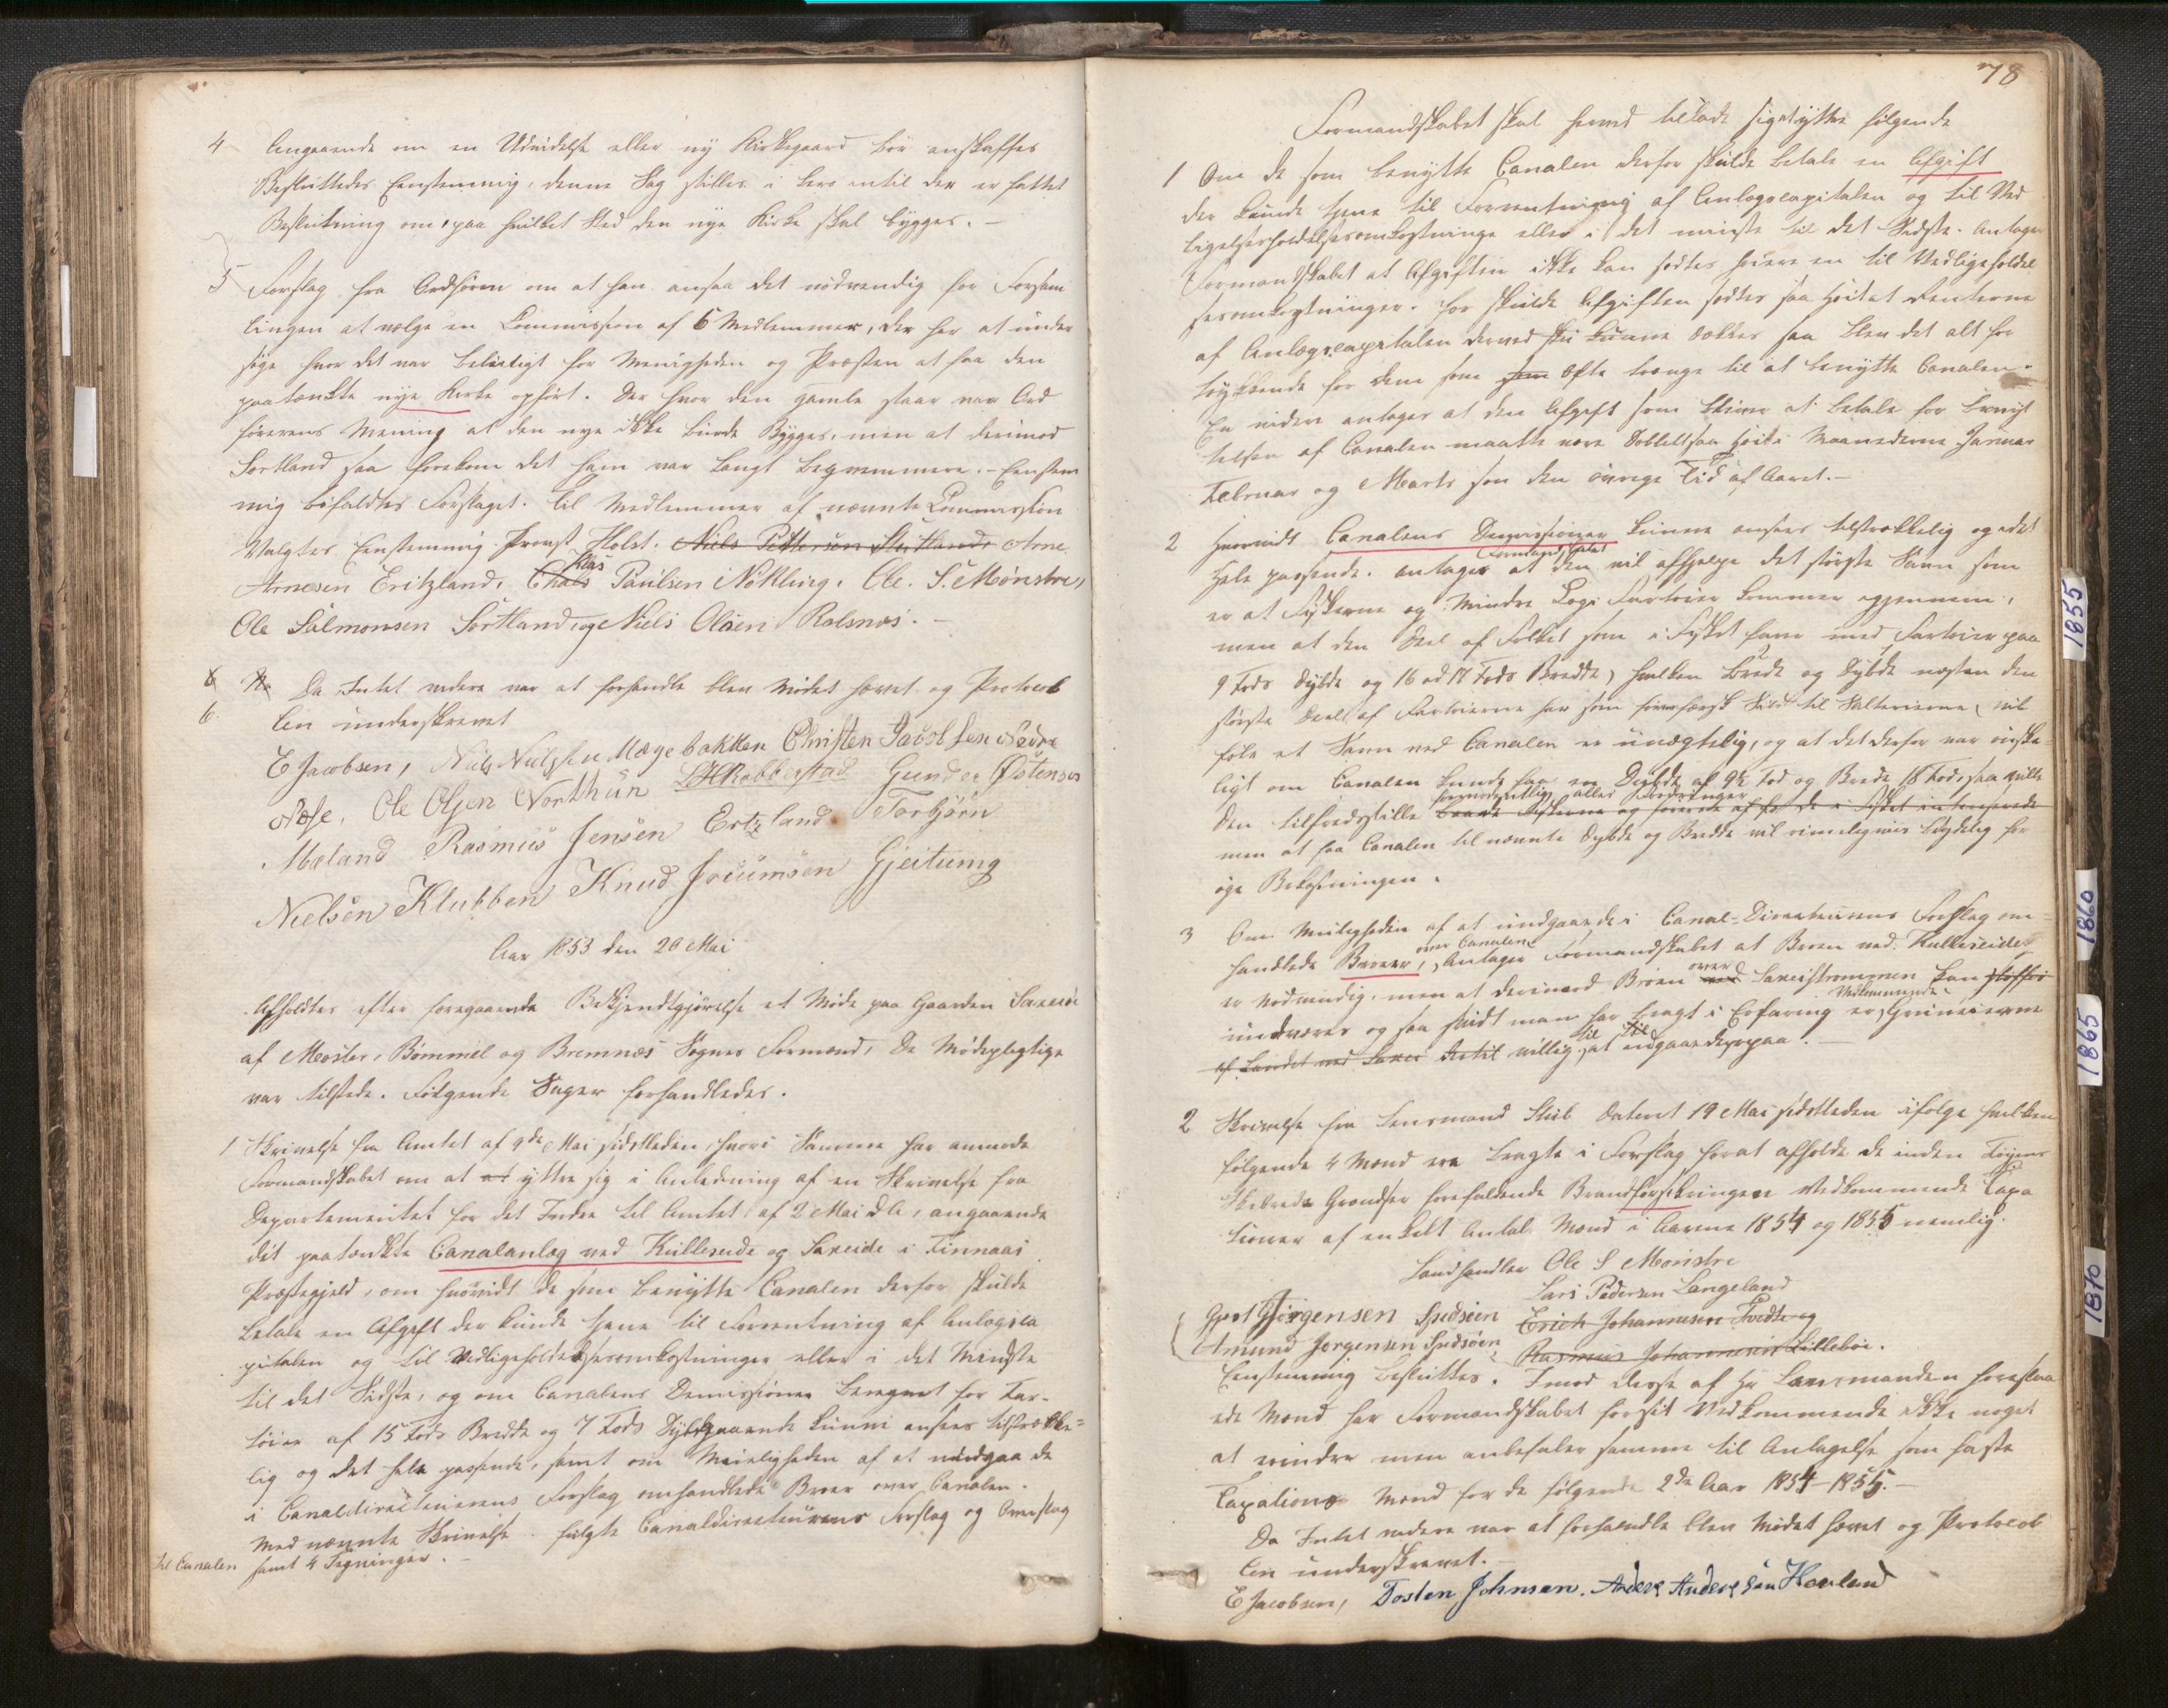 4 Angaaende om en Udvidelse eller ny Kirkegaard bør anskaffes
Besluttedes Eenstemmig, denne Sag stilles i bero indtil der er fattet
Beslutning om, paa hvilket Sted den nye Kirke skal bygges. –
5 Forslag fra Ordføren om at han ansaa det nødvendig for Forsam
lingen at vælge en Commission af 5 Medlemmer, der har at under
søge hvor det var beleiligt for Menigheden og Præsten at faa den
paatænkte nye Kirke opført. Der hvor den gamle staar var Ord
førerens Mening at den nye ikke burde Bygges, men at derimod
Sortland saa forekom det ham var langt beqvemmere. – Eenstem
mig bifaldtes Forslaget. Til Medlemmer af nævnte Commission
Valgtes Eenstemmig Provst Holst. Niels Pettersen Stutland Arne
Klas
Arnesen Eritzland, Chals Paulsen Nøkling, Ole. S. Mønstre,
Ole Salmonsen Sortland og Niels Olsen Rolsnæs. –
6 Da Intet videre var at forhandle blev Mødet hævet og Protocol
len underskrevet
E Jacobsen, Niels Nielssen Mæge bakken Christen Jacobsen Nedre
Næse, Ole Olsen Northun LH Robberstad Gunder Østensen
Mæland Rasmus Jensen Ertzland Torbjørn
Nielsen Klubben Knud Joeumsen Gjeitung
Aar 1853 den 20 Mai
Afholdtes efter foregaaende Bekjendtgjørelse et Møde paa Gaarden Saxeide
af Moster, Bømmel og Bremnæs Sognes Formænd, De Mødepligtige
var tilstede. Følgende Sager forhandledes.
1 Skrivelse fra Amtet af 9de Mai sidstleden, hvori Samme har anmodet
Formandskabet om at yttre sig i Anledning af en Skrivelse fra
Departementet for det Indre til Amtet af 2 Mai d A, angaaende
det paatænkte Canalanlæg ved Kulleseide og Saxeide i Finnaas
Præstegjeld, om hvorvidt de som benytte Canalen derfor skulde
betale en Afgift der kunde tjene til Forrentning af Anlægsca
pitalen og til Vedligeholdelsesomkostninger eller i det Mindste
til det Sidste, og om Canalens Demissioner beregnet for Far-
tøier af 15 Fods Bredde og 7 Fods Dybgaaende kunne ansees tilstrække=
lig og det hele passende, samt om Mueligheden af at undgaa de
i Canaldirecteurens Forslag omhandlede Broer over Canalen.
Med nævnte Skrivelse fulgte Canaldirecteurens Forslag og Overslag
til Canalen samt 4 Tegninger. –
78
Formandskabet skal herved tillade sig at yttre følgende
1 Om de som benytte Canalen derfor skulde betale en Afgift
der kunde tjene til Forrentning af Anlægscapitalen og til Ved
ligeholdelsesomkostninge eller i det mindste til det Sidste. Antager
Formandskabet at Afgiften ikke kan sættes høiere en til Vedligeholdel
sesomkostninger. for skulde Afgiften sættes saa høit at Renterne
af Anlægscapitalen derved sku kunne dækkes saa blev det alt for
trykkende for dem som som ofte trænge til at benytte Canalen.
En videre antages at den Afgift som bliver at betale for benyt
telsen af Canalen maatte være Dobbelt saa høit i Maanederne Januar
Februar og Marts som den øvrige Tid af Aaret. –
2 Hvorvidt Canalens Demissioner kunne ansees tilstrækkelig og det
Formandskabet
Hele passende. antages at den vil afhjælpe det største Savn som
er at Fiskerne og Mindre Logi Fartøier kommer igjennem,
men at den Deel af Folket som i Fisket farer med Fartøier paa
9 Fods Dybde og 16 a 17 Fods Bredde, hvilken Brede og Dybde næsten den
største Deel af Fartøierne har som fører færsk Sild til Salterierne, vil
føle et Savn ved Canalen er unægtelig, og at det derfor var ønske=
ligt om Canalen kunde faa en Dybde af 9½ Fod og Brede 18 Fod, saa vilde
formodentlig alles Fordringer
den tilfredsstille baade Fiskerne og førerne af de i Fisket interesserede
men at faa Canalen til nævnte Dybde og Bredde vil rimeligviis betydelig for
øge Bekostningen.
3 Om Muligheden af at undgaa de i Canal-Directeurens Forslag om=
over Canalen
handlede Broer, Antager Formandskabet at Broen ved Kulleseide
over
er nødvendig, men at derimod Broen ved Saxeistrømmen kan
Vedkommende
undværes og saa vidt man har bragt i Erfaring er Gruneierne
til
af Landet ved Saxei dertil villig at indgaa derpaa. –
2 Skrivelse fra Lensmand Stub dateret 19 Mai sidstleden ifølge hvilken
følgende 4 Mænd ere bragte i Forslag for at afholde de inden Føyens
Skibrede Grændser forefaldende Brandforsikringen Vedkommende Taxa
tioner af enkelt Antal Mænd i Aarene 1854 og 1855 nemlig:
Landhandler Ole S Mønstre
Lars Pedersen Langeland
Gjert Gjørgensen Spedsøen Erich Johannesen Tvedte og
Amund Jørgensen Spedsøen Rasmus Johannesen Lillebøe.
Eenstemmig besluttes. Imod disse af Hr Lensmanden foreslaa
ede Mænd har Formandskabet for sit Vedkommende ikke noget
at erindre men anbefaler samme til Antagelse som faste
Taxations Mænd for de følgende 2de Aar 1854–1855. –
Da Intet videre var at forhandle blev Mødet hævet og Protocol
len underskrevet. –
E Jacobsen, Tosten Johnsen. Anders Andersen Hovland
1855
1860
1865
1870